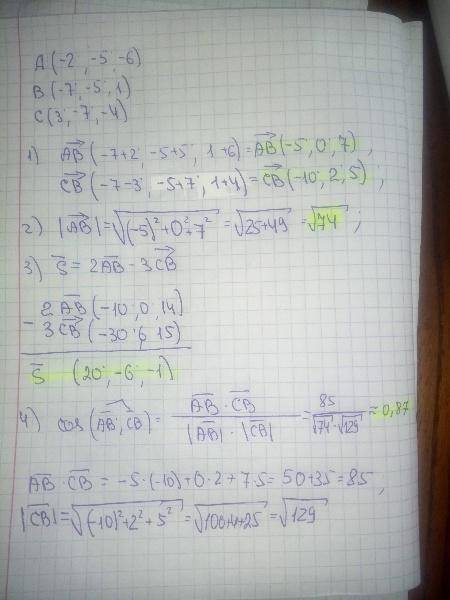 A(-2; -5; -6)
B(-7; -5; 1)
C(3; -7; -4)
1) AB⃗(-7+2; -5+5; 1+6) = AB⃗(-5; 0; 7),
CB⃗(-7-3; -5+7; 1+4) = CB⃗(-10; 2; 5);
2) |AB⃗| = √((-5)²+0²+7²) = √(25+49) = √74;
3) S̅ = 2AB̅ - 3CB⃗
2AB⃗(-10; 0; 14)
- 3CB⃗(-30; 6; 15)
S̅ (20; -6; -1)
4) cos(AB̅; CB̅) = AB̅ · CB̅ / |AB̅| · |CB| = 85 / √74 · √129 ≈ 0,87
AB̅ · CB̅ = -5·(-10)+0·2+7·5 = 50+35 = 85,
|CB̅| = √((-10)²+2²+5²) = √(100+4+25) = √129